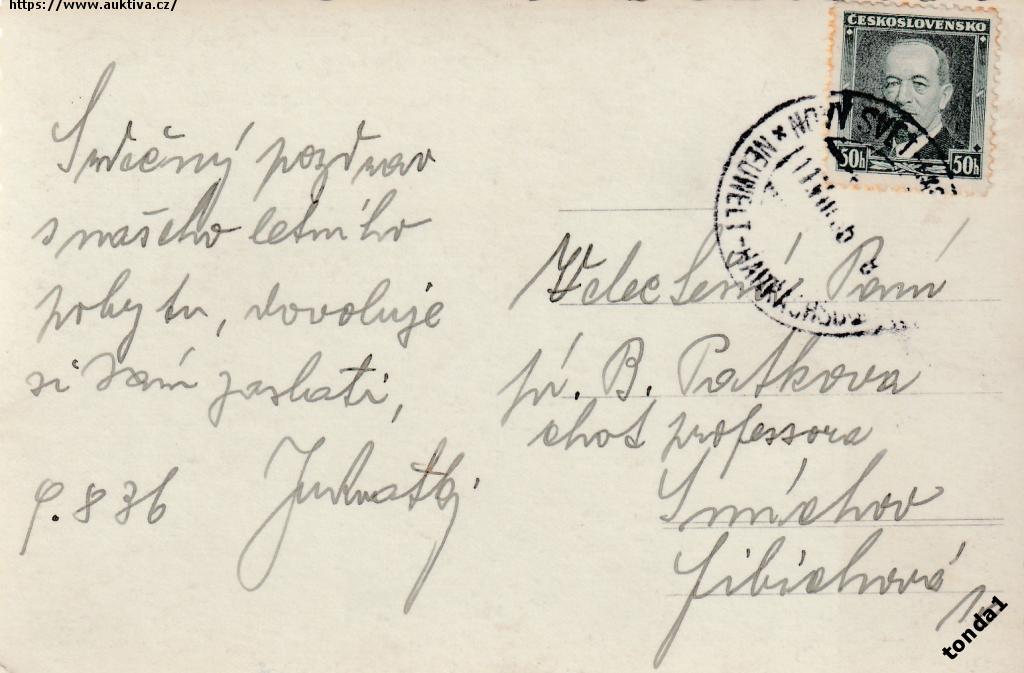 https://www.auktiva.cz/
ČESKOSLOVENSKO
50h 50h
NOVÝ SVĚT
NEUWELT-HARRACHSD
Srdečný pozdrav
s našeho letního
pobytu, dovoluje
si Vám zaslati,
9. 8 36
Velectená Paní
B. Patkova
choť professora
Smíchov
Fibichová
tonda1